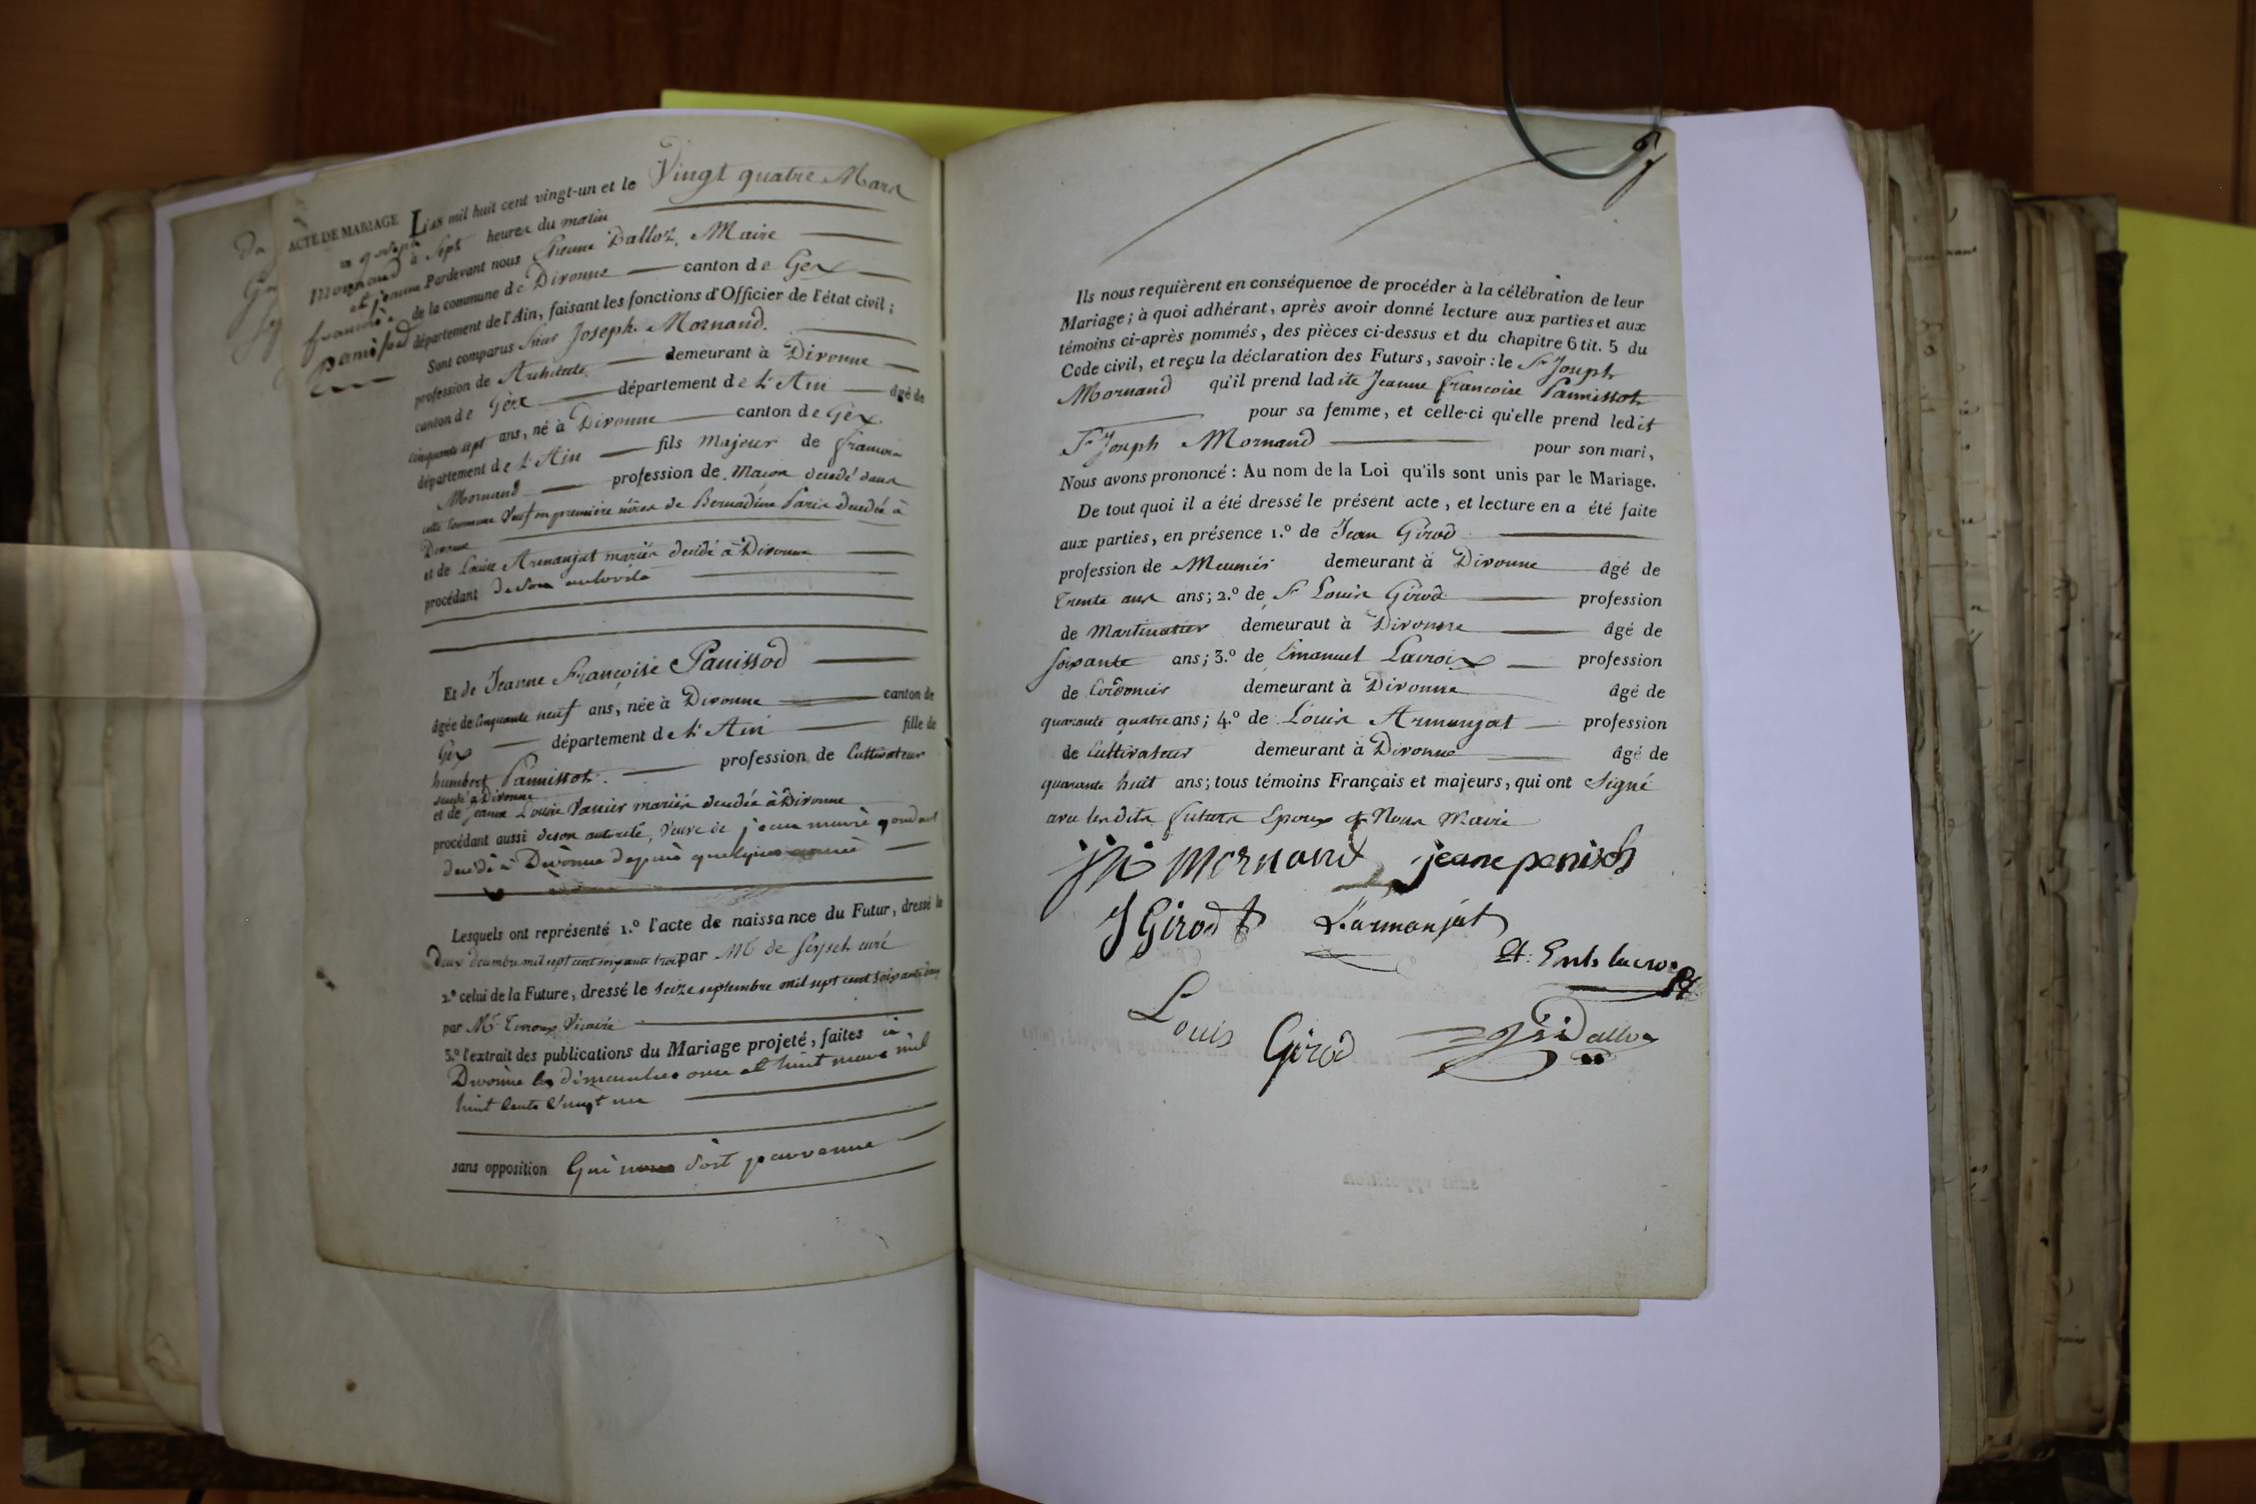 ACTE DE MARIAGE L'AN mil huit cent vingt-un et le Vingt quatre Mars
à Sept heures du matin
Mornand
et jeanne Pardevant nous Dalloz, Maire
françoise de la commune de Divonne canton de Gex
Panissod département de l'Ain, faisant les fonctions d'Officier de l'état civil;
Sont comparus Sieur Joseph Mornand.
profession de Architecte demeurant à Divonne
canton de Gex département de L'Ain âgé de
cinquante sept ans, né à Divonne canton de Gex
département de L'Ain fils Majeur de françois
Mornand profession de Maçon decédé dans
cette Commune Veuf en première nôces de Bernadine Paris decedée à
Divonne
et de Louise Armanjat mariés decidé à Divonne
procédant de son autorité
Et de Jeanne Françoise Panissod
âgée de Cinquante neuf ans, née à Divonne canton de
Gex département de L'Ain fille de
humbert Pannissot profession de Cultivateur
decedé à Divonne
et de Jeanne Louise Vanier mariés decedée à Divonne
procédant aussi de son autorité, Veuve de jean marie
decédé à Divonne depuis quelques
Lesquels ont représenté 1.º l'acte de naissance du Futur, dressé le
Deux decembre mil sept cent soixante trois par Mr de curé
2.º celui de la Future, dressé le seize septembre mil sept cent soixante
par Mr Vicaire
3.º l'extrait des publications du Mariage projeté, faites à
Divonne les dimanches onze et huit mars mil
huit cents Vingt un
sans opposition Qui nous soit parvenue
Ils nous requièrent en conséquence de procéder à la célébration de leur
Mariage; à quoi adhérant, après avoir donné lecture aux parties et aux
témoins ci-après nommés, des pièces ci-dessus et du chapitre 6 tit. 5 du
Code civil, et reçu la déclaration des Futurs, savoir: le Sr Joseph
Mornand qu'il prend ladite Jeanne françoise Pannissot
pour sa femme, et celle-ci qu'elle prend ledit
Sr Joseph Mornand pour son mari,
Nous avons prononcé: Au nom de la Loi qu'ils sont unis par le Mariage.
De tout quoi il a été dressé le présent acte, et lecture en a été faite
aux parties, en présence 1.º de Jean Girod
profession de Meunier demeurant à Divonne âgé de
trente ans ans; 2.º de Sr Louis Girod profession
de Martinatier demeuraut à Divonne âgé de
soixante ans; 3.º de Emanuel Lacroix profession
de Cordonnier demeurant à Divonne âgé de
quarante quatre ans; 4.º de Louis Armanjat profession
de Cultivateur demeurant à Divonne âgé de
quarante huit ans; tous témoins Français et majeurs, qui ont Signé
avec lesdits futurs Epoux & Nous Maire
Mornand jeane panisod
J Girod L. armanjat
lacroix
Louis Girod Dalloz